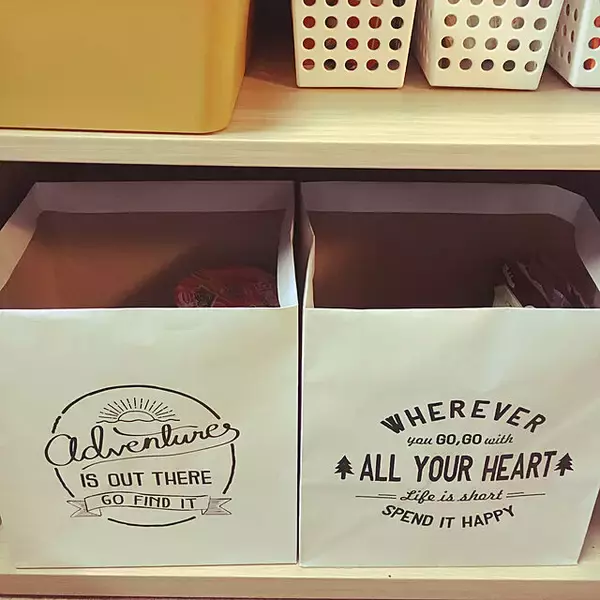 Adventures
IS OUT THERE
GO FIND IT
WHEREVER
you GO, GO with
ALL YOUR HEART
Life is short
SPEND IT HAPPY